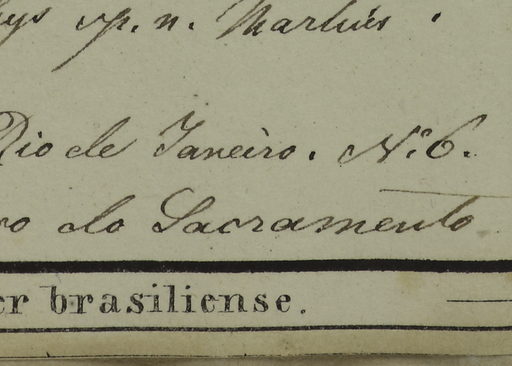 sp. n. Martius.
Rio de Janeiro. Nº 6.
do Sacramento
er brasiliense.